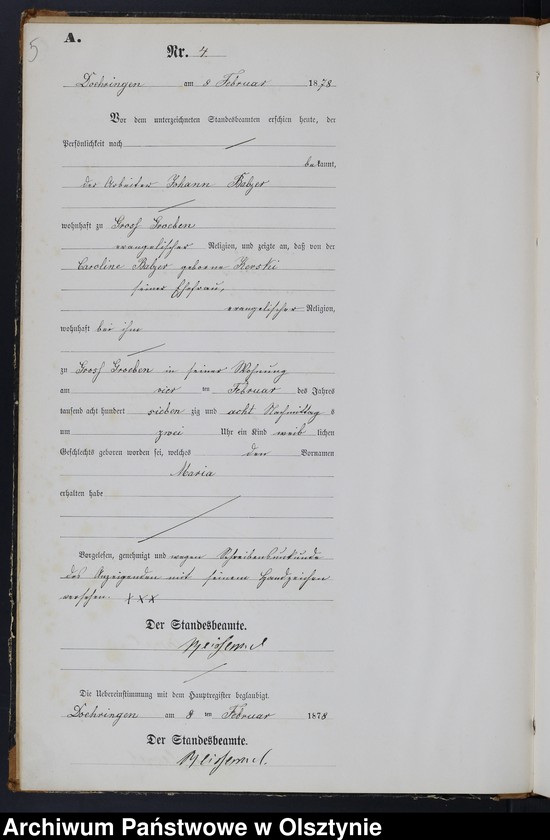 5
A.
Nr. 4.
Doehringen am 8 Februar 1878
Vor dem unterzeichneten Standesbeamten erschien heute, der
Persönlichkeit nach
bekannt,
der Arbeiter Johann Balzer
wohnhaft zu Gross Groeben
evangelischer Religion, und zeigte an, daß von der
Caroline Balzer geborne Kerski
seiner Ehefrau,
evangelischer Religion,
wohnhaft bei ihm
zu Gross Groeben in seiner Wohnung
am vier ten Februar des Jahres
tausend acht hundert sieben zig und acht Nachmittag s
um zwei Uhr ein Kind weib lichen
Geschlechts geboren worden sei, welches den Vornamen
Maria
erhalten habe
Vorgelesen, genehmigt und wegen Schreibensunkunde
des Anzeigenden mit seinem Handzeichen
versehen. XXX
Der Standesbeamte.
Die Uebereinstimmung mit dem Hauptregister beglaubigt.
Doehringen am 8 ten Februar 1878
Der Standesbeamte.
Archiwum Państwowe w Olsztynie